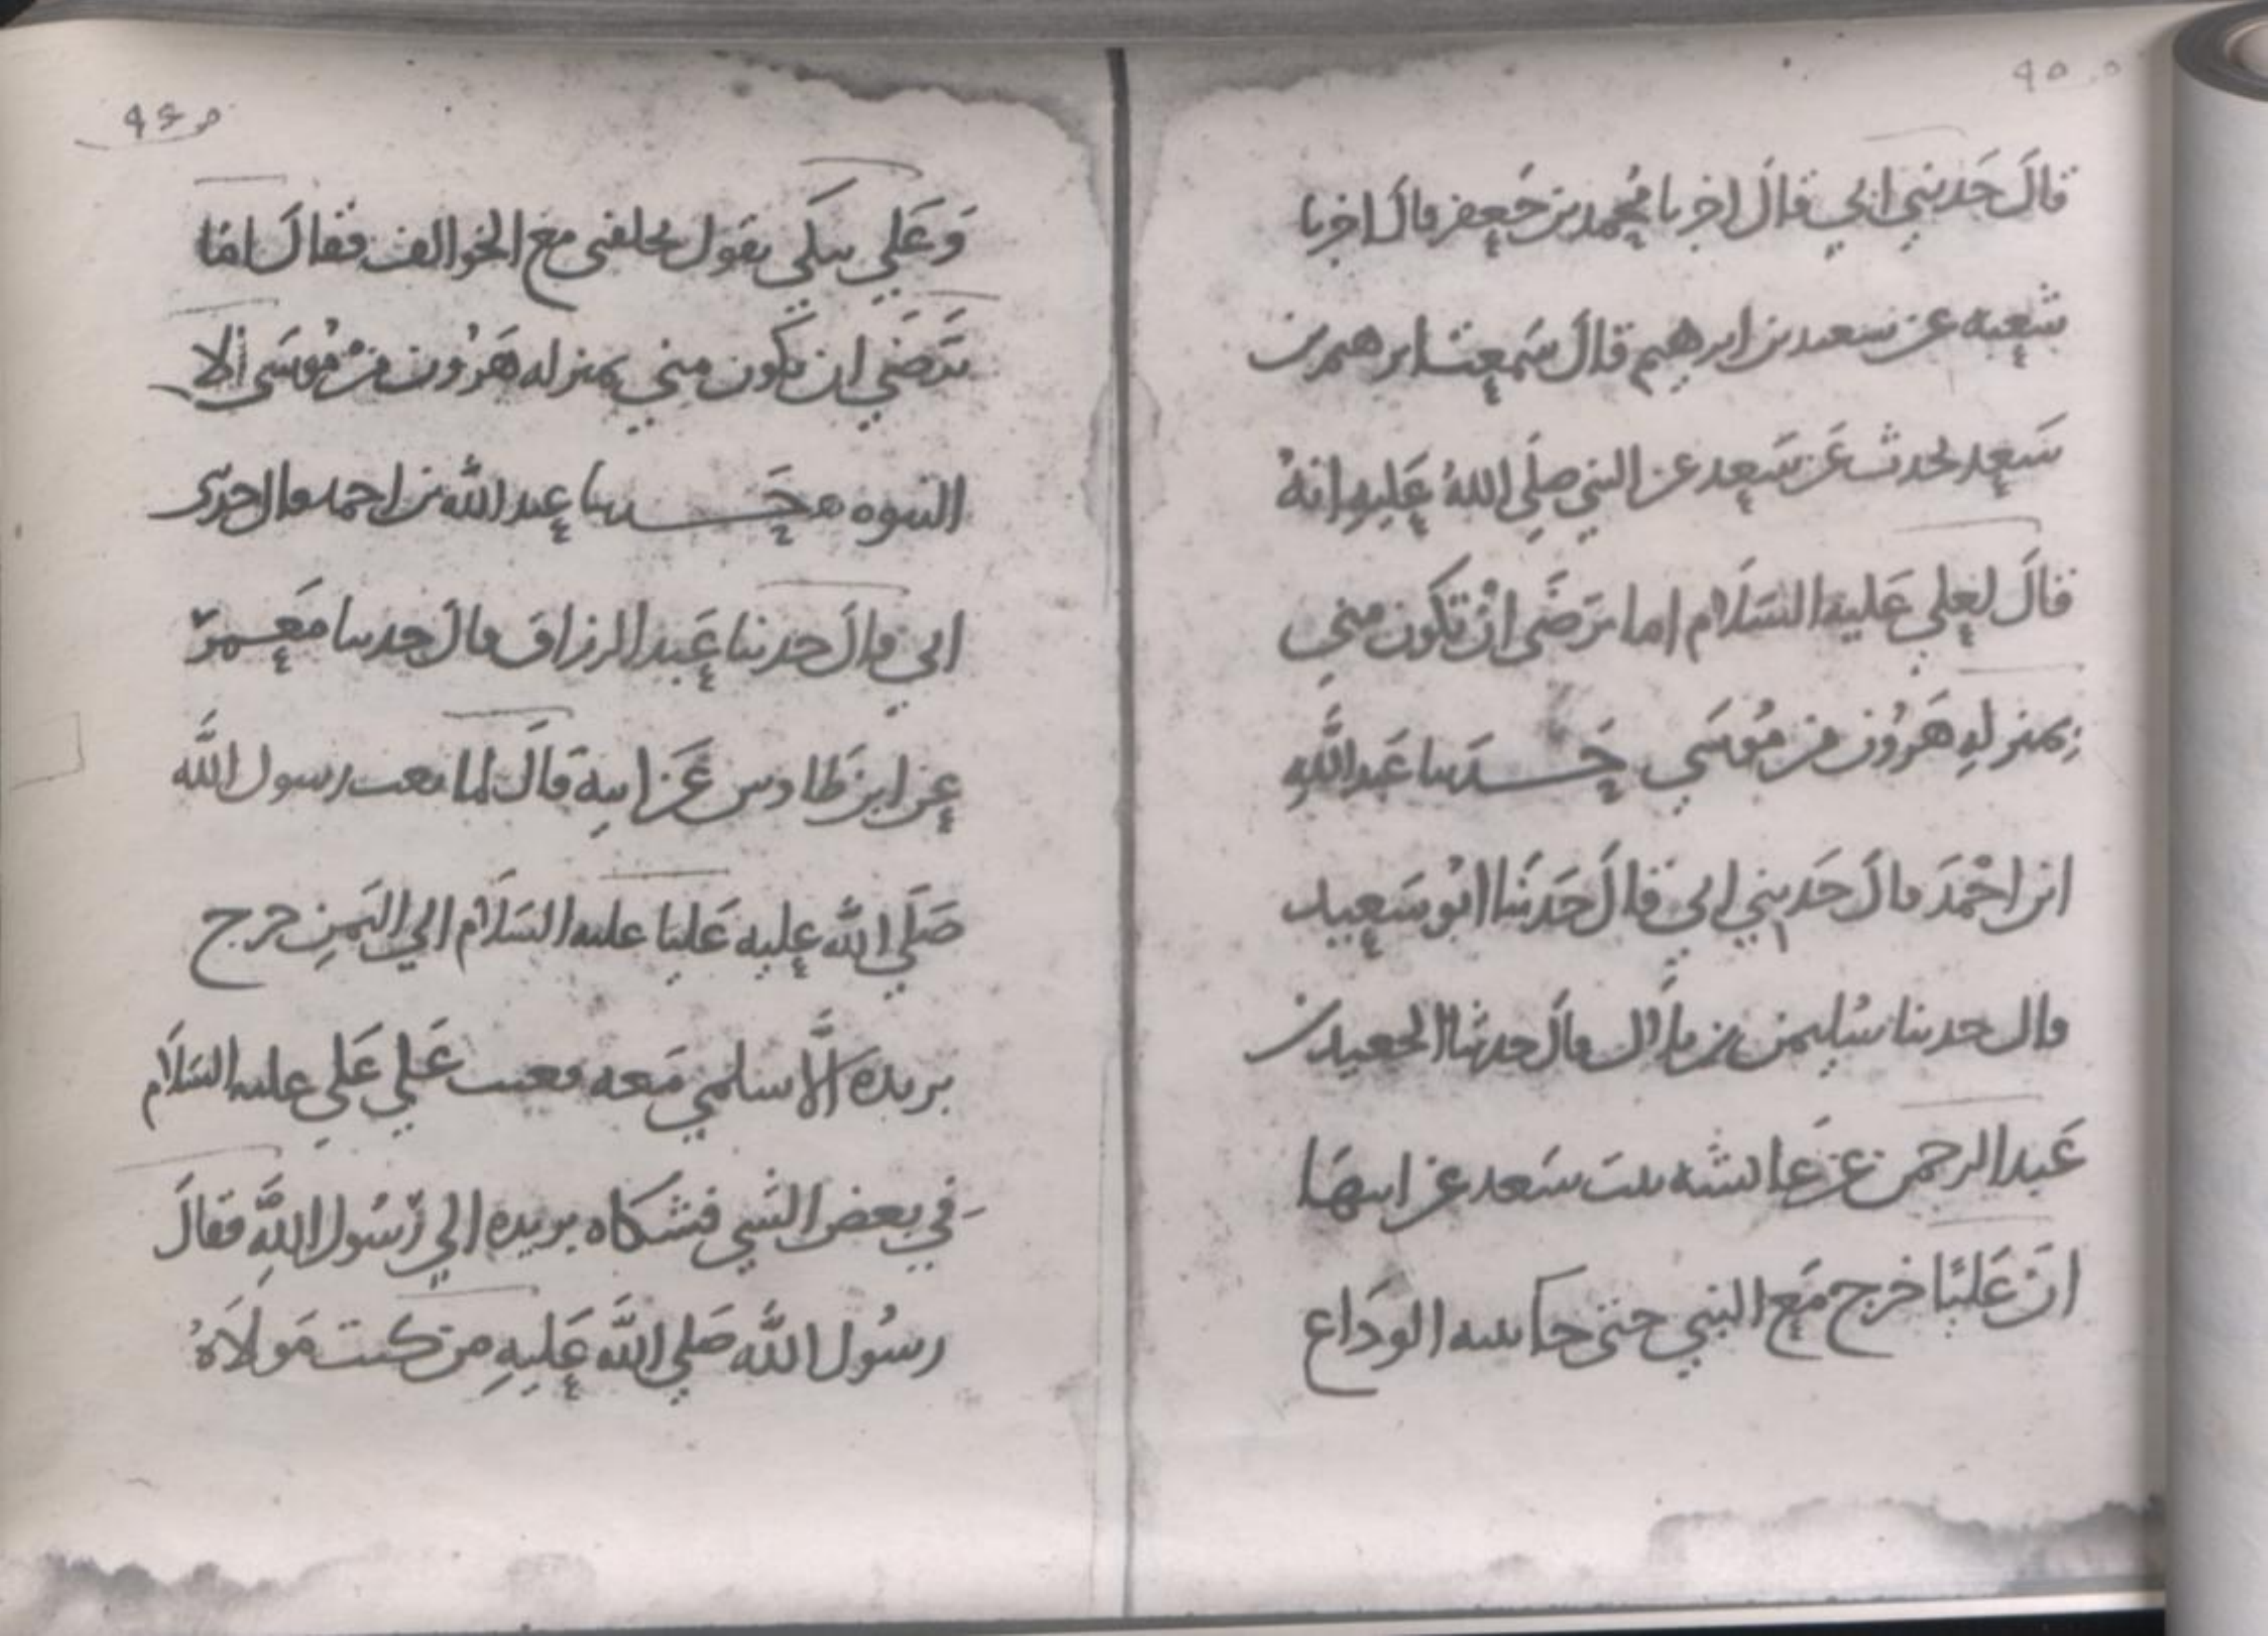 ٩٥
قالَ حَدثني ابي قالَ اخبرنا مُحمد بن جَعفر قالَ اخبرنا
شعبه عن سعد بن ابرهيم قالَ سَمعت ابرهيم بن
سَعد يحدث عَن سَعد عن النبي صلَى اللهُ عَليهِ انهُ
قالَ لعلي عَليه السَلَام اما ترَضَى انْ تكون مني
بمنزلهِ هَرُون من مُوسَي حَدثنا عَبد اللَّهِ
ابن احْمَدَ قالَ حَدثني ابي قالَ حَدثنا ابُو سَعيد
قال حدثنا سُليمن بن بلال قالَ حدثنا الجعيد بن
عَبد الرحمن عن عَايشه بنت سَعد عن ابيهَا
انَ عَليًا خرج مَع النبي حتى جا ثنيه الودَاع
٩٦
وَعَلي يبكَي يقول تخلفنى مع الخوالف فقالَ اما
تَرضَي ان تكون مني بمنزله هَرُون منْ مُوسَى الا
النبوه ه حَدثنا عبد الله بن احمد قال حدثنى
ابي قالَ حدثنا عَبد الرزاق قالَ حدثنا مَعمر
عن ابن طَاوس عَن ابيه قالَ لما بعث رسول اللَّه
صَلَي اللَّه عليه عَليا عليه السَلَام الي اليَمنِ خرج
بريدَه الاسلمي مَعه فعتب عَلي عَلي عليه السَلَام
في بعض الشَي فشكَاه بريده الي رَسُول اللَّهِ فقالَ
رسُول اللَّه صَلي اللَّه عَليهِ من كنت مَولَاهُ